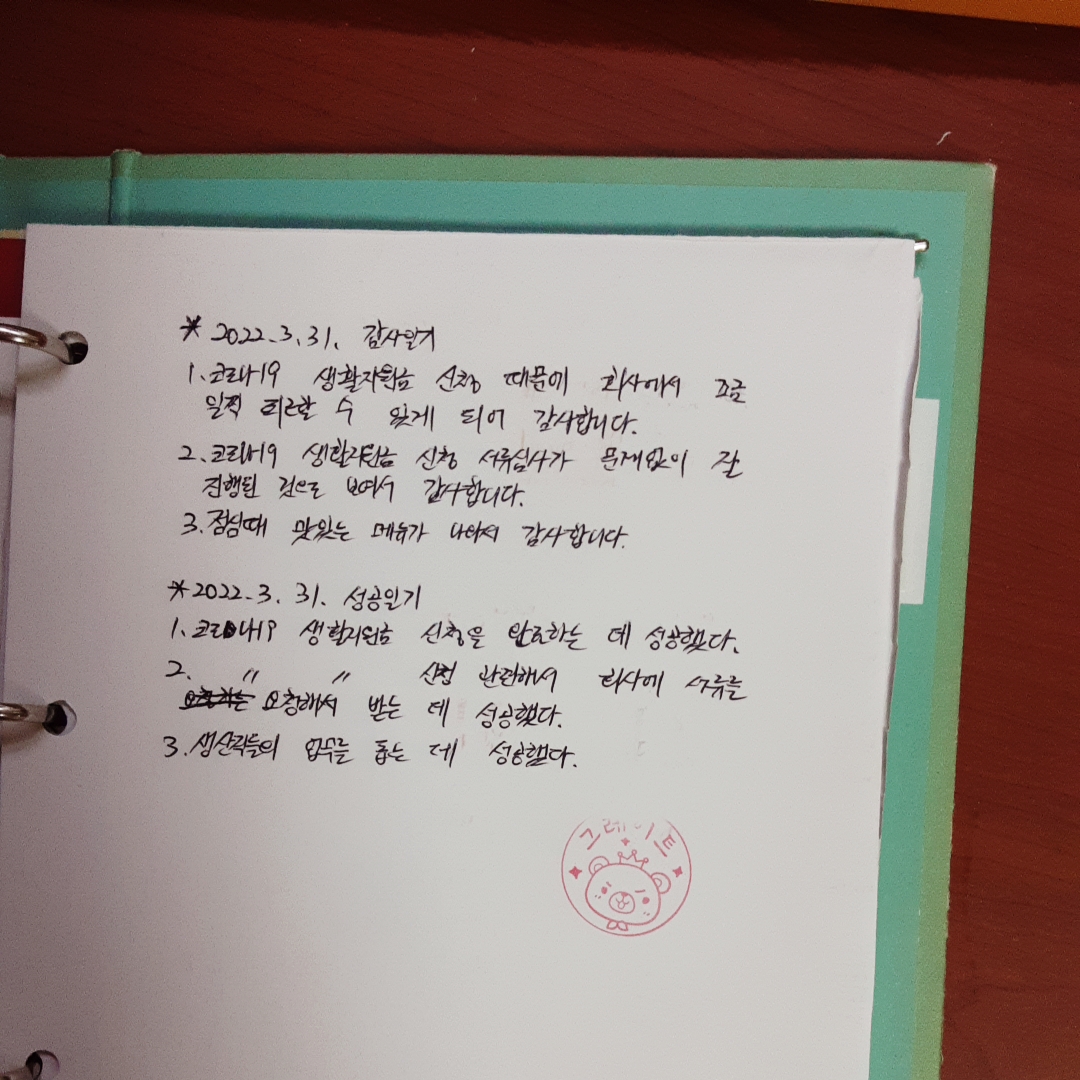 * 2022.3.31. 감사일기
1. 코로나19 생활지원금 신청 때문에 회사에서 조금
일찍 퇴근할 수 있게 되어 감사합니다.
2. 코로나19 생활지원금 신청 서류심사가 문제없이 잘
진행된 것으로 보여서 감사합니다.
3. 점심때 맛있는 메뉴가 나와서 감사합니다.
* 2022.3.31. 성공일기
1. 코로나19 생활지원금 신청을 완료하는 데 성공했다.
2. 〃 〃 신청 관련해서 회사에 서류를
요청해서 받는 데 성공했다.
3. 생산직들의 업무를 돕는 데 성공했다.
그레이트